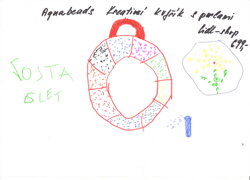 Aquabeads Kreativní kufřík s perlami
lidl-shop
699,-
VOJTA
6 LET